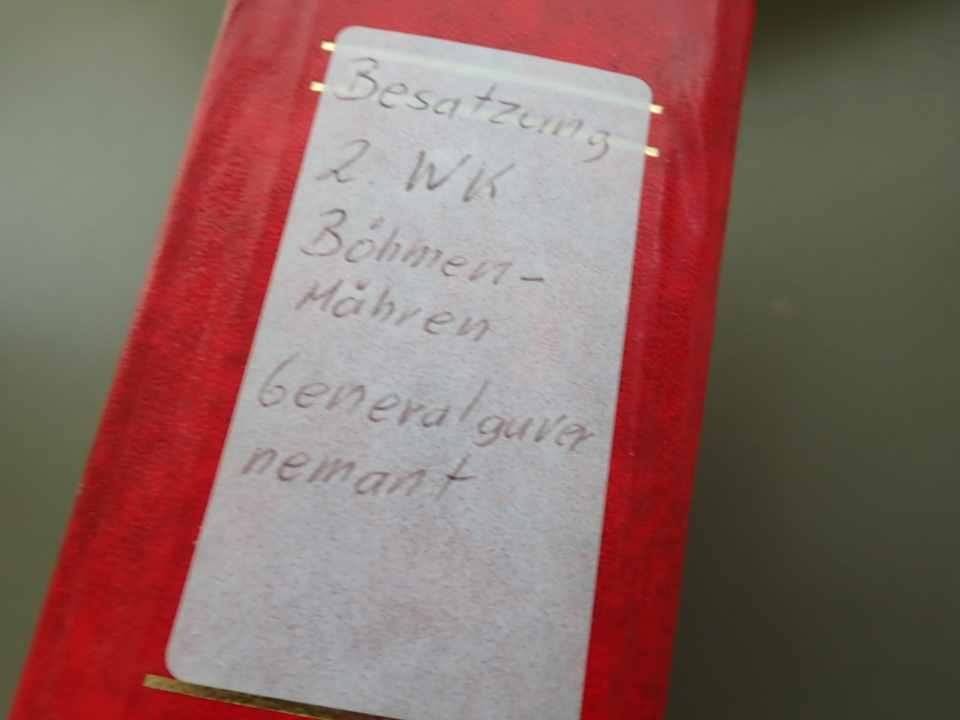 Besatzung
2. WK
Böhmen-
Mähren
Generalguver
nemant